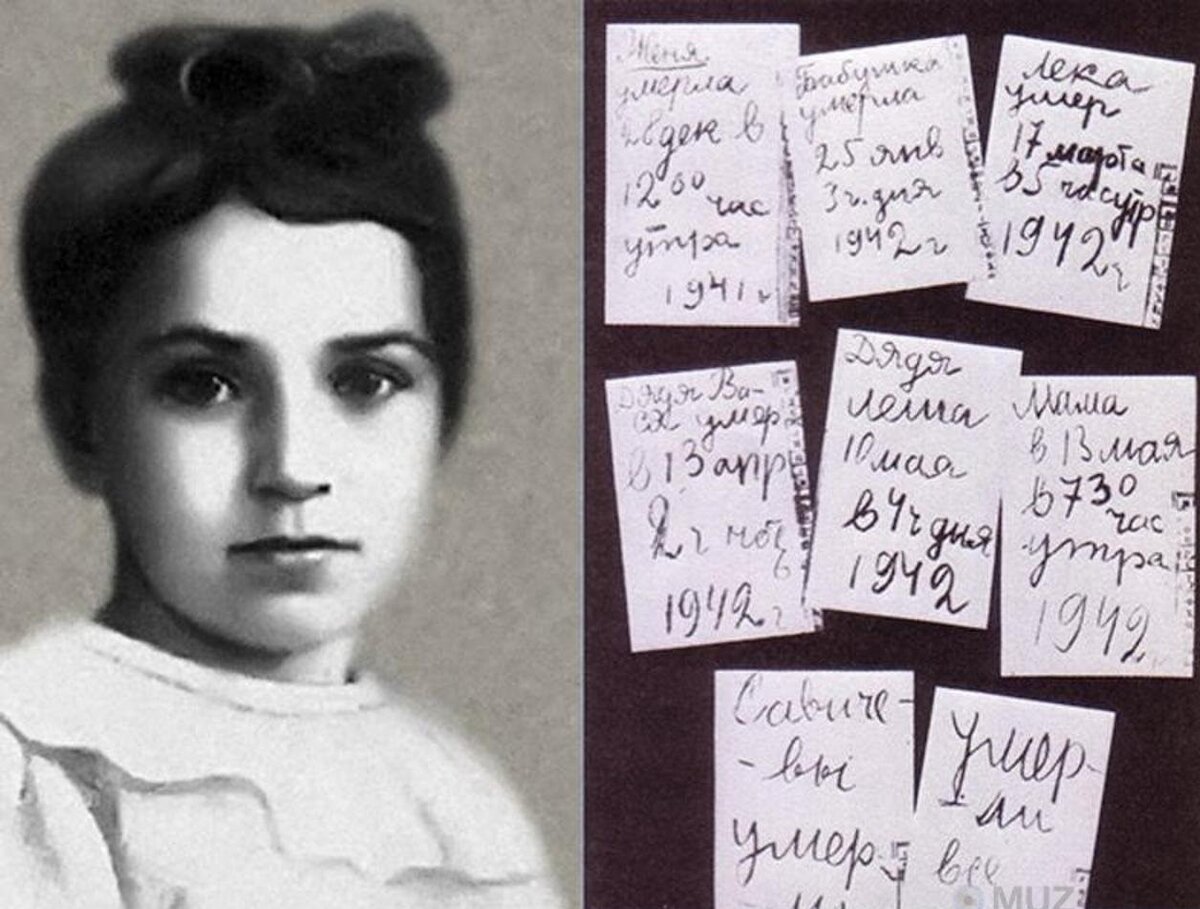 Женя
умерла
28 дек в
12 00
час
утра
1941 г
Бабушка
умерла
25 янв
3 ч. дня
1942 г
Лека
умер
17 марта
в 5 час утр
1942 г
Дядя Ва-
ся умер
в 13 апр
2 ч ноч
1942 г
Дядя
Леша
10 мая
в 4 ч дня
1942
Мама
в 13 мая
в 7 30
час
утра
1942
Савиче-
-вы
умер
Умер-
-ли
все
MUZ